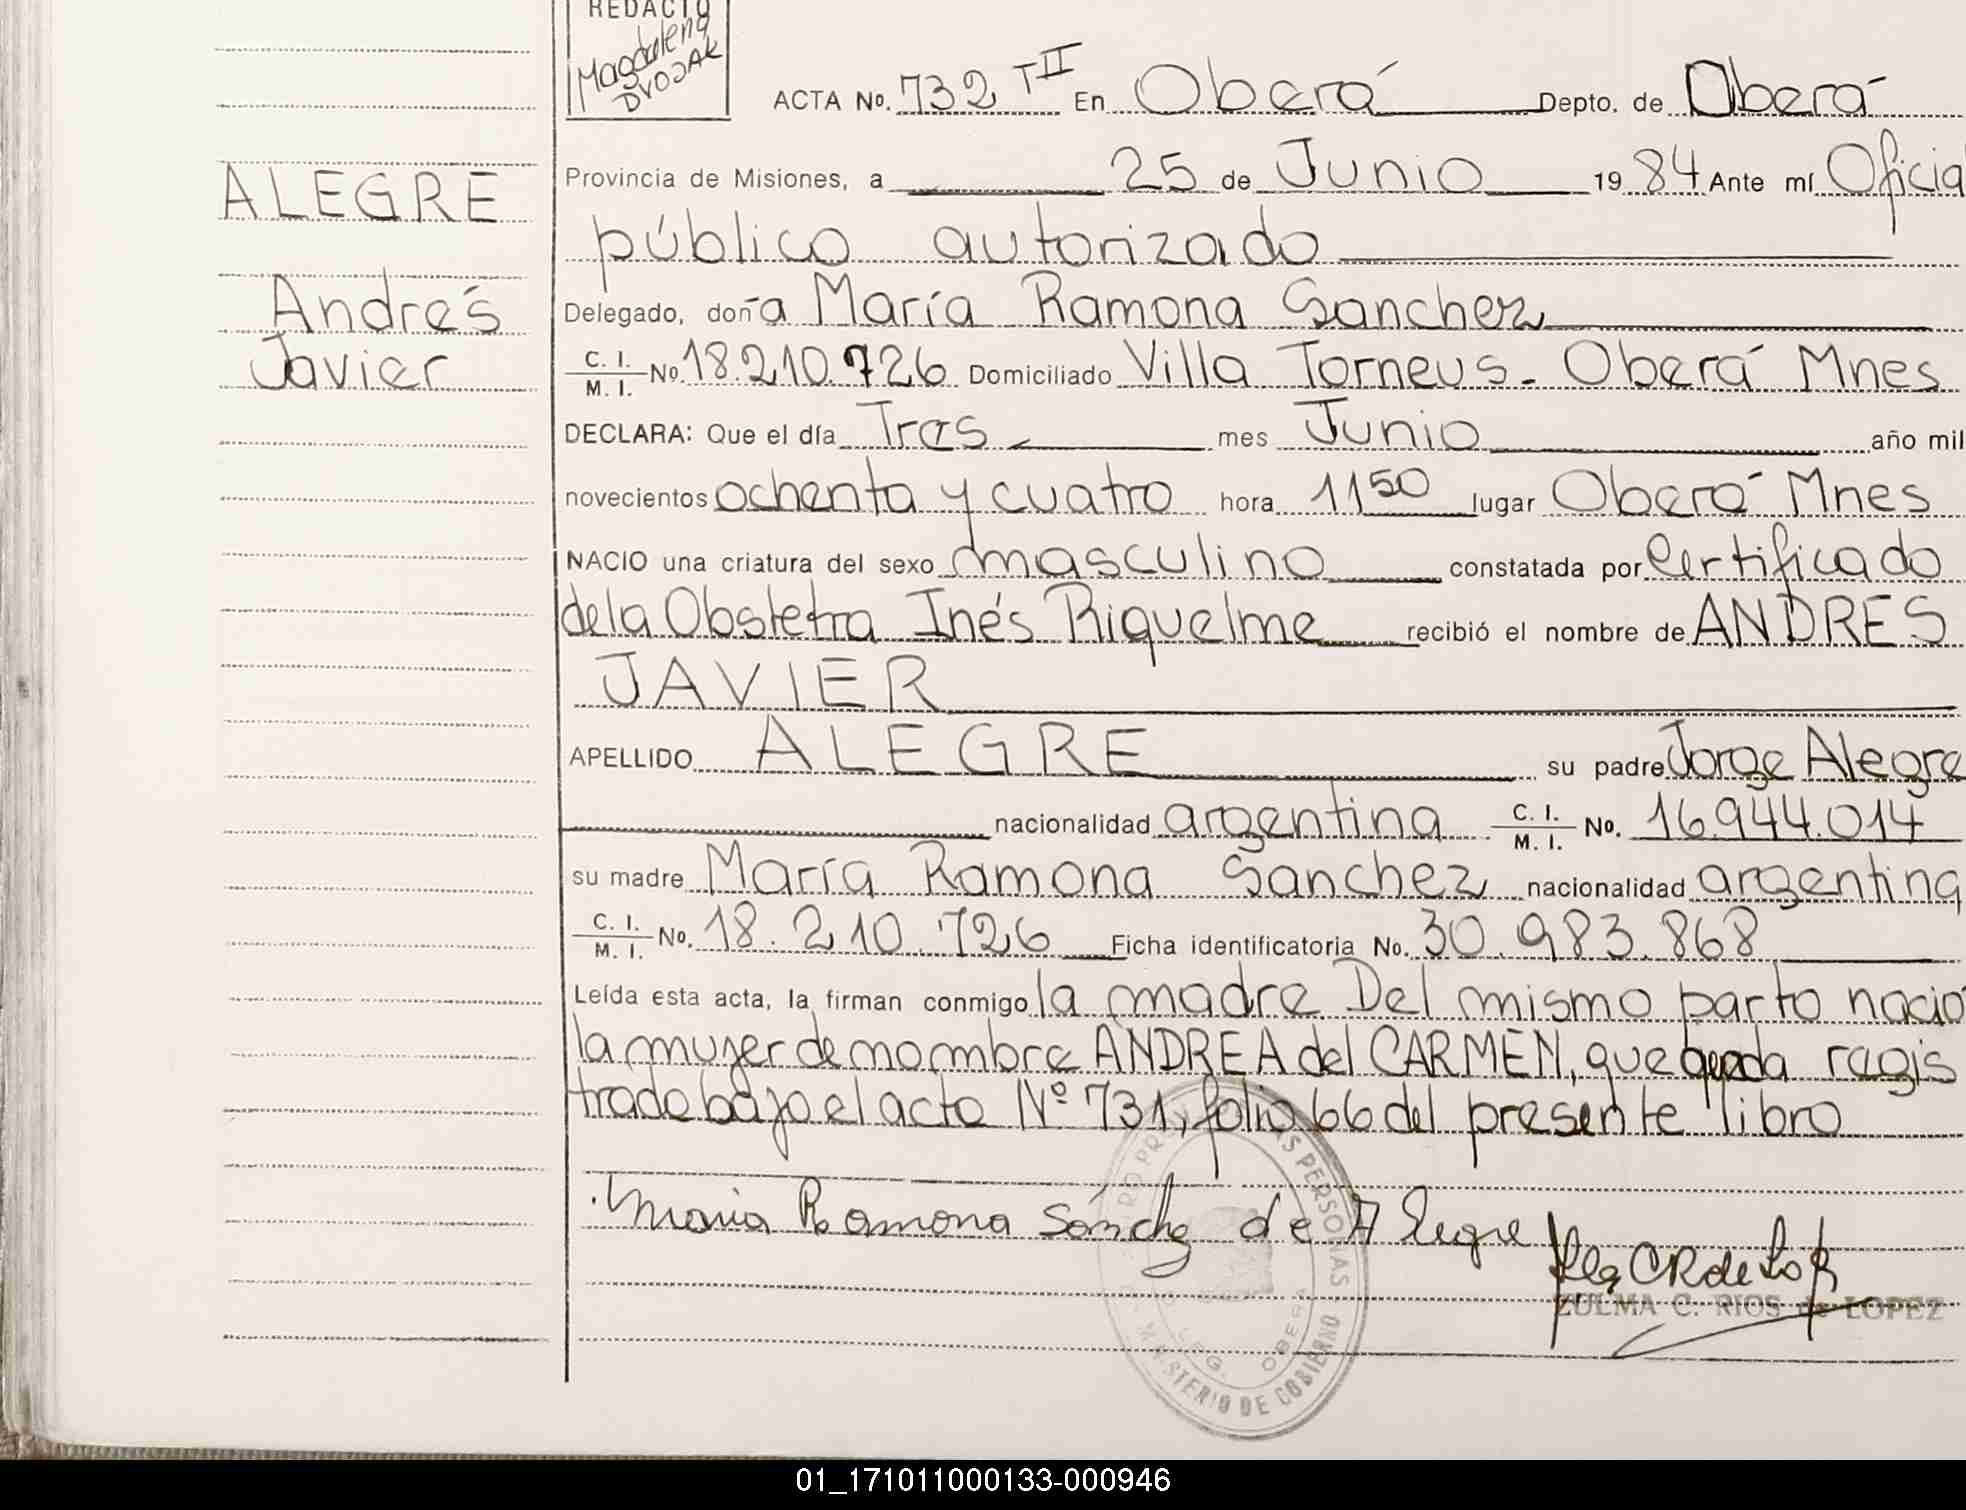 REDACTO
Magdalena
DVOJAK
ACTA No. 732 TII En Oberá Depto. de Oberá
ALEGRE
Provincia de Misiones, a 25 de Junio 1984 Ante mí Oficial
público autorizado
Andrés
Delegado, doña María Ramona Sanchez
Javier
C. I. M. I. No. 18.210.726 Domiciliado Villa Torneus - Oberá Mnes
DECLARA: Que el día Tres mes Junio año mil
novecientos ochenta y cuatro hora 11 50 lugar Oberá Mnes
NACIO una criatura del sexo masculino constatada por Certificado
de la Obstetra Inés Riquelme recibió el nombre de ANDRES
JAVIER
APELLIDO ALEGRE su padre Jorge Alegre
nacionalidad argentina C. I. M. I. No. 16.944.014
su madre María Ramona Sanchez nacionalidad argentina
C. I. M. I. No. 18.210.726 Ficha identificatoria No. 30.983.868
Leída esta acta, la firman conmigo la madre Del mismo parto nació
la mujer de nombre ANDREA del CARMEN, que queda regis
trado bajo el acto Nº 731, folio 66 del presente libro
Maria Ramona Sánchez de Alegre
ZULMA C. RIOS de LOPEZ
LAS PERSONAS
DELEG. OBERA
MINISTERIO DE GOBIERNO
01_171011000133-000946